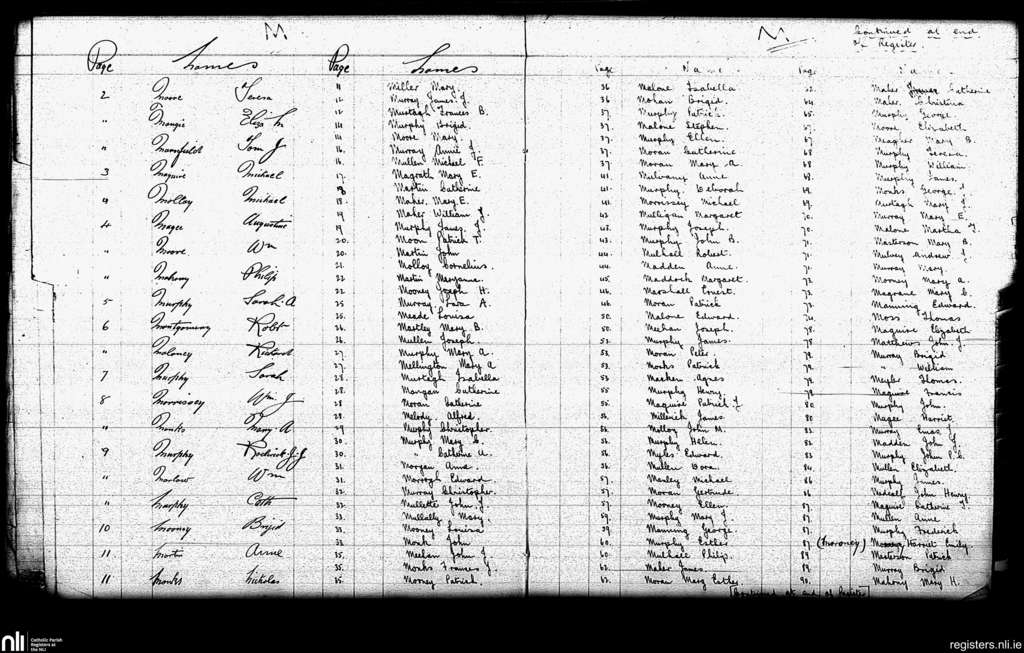 M
M
Continued at end
of Register.
Page Names
2 Moore Teresa
" Mongie Eliza M
" Tom J
3 Maguire Michael
4 Molloy Michael
4 Magee Augustine
" Moore Wm
" Mahony Philip
5 Murphy Sarah A
6 Montgomery Robt
" Moloney Richard
7 Murphy Sarah
8 Morrissey Wm J
" Monks Mary A
9 Murphy Roderick J.J
" Marlow Wm
" Murphy Cath
10 Mooney Brigid
11 Martin Anne
11 Monks Nicholas
Page Names
11 Miller Mary.
12 Murray James J.
12 Murtagh Frances B.
14 Murphy Brigid.
14 Moore Mary.
16. Murray Annie J.
16. Mullen Michael F.
17. Magrath Mary E.
18 Martin Catherine
18. Maher. Mary E.
19 Maher William J.
19. Murphy James J.
20. Moon Patrick T.
20. Martin John
21. Molloy Cornelius.
22. Martin Marianna
22. Mooney Joseph H.
25 Murray, Sara A.
25. Meade Louisa
26. Martley Mary B.
26. Mullen Joseph.
27. Murphy Mary A.
27. Mellington Mary A
28. Murtagh Isabella
28. Morgan Catherine
28 Moran Catherine
28. Melody. Alfred.
29 Murphy Christopher.
30. Murphy Mary C.
30. " Catherine A.
31. Morgan Anna.
31. Edward.
32. Murray Christopher.
32. Mullette John J.
33. Mullally Mary.
33. Mooney Louisa
33. Monk John
35. Meehan John J.
35. Monks Frances J.
35. Mooney Patrick.
Page Name
36 Malone Isabella
36 Mohan Brigid.
37. Murphy Patrick
37. Malone Stephen.
37. Murphy Ellen.
37 Moran Catherine
37 Moran Mary A
41. Mulvany Anne
41. Murphy. Deborah
41. Morrissey Michael
42. Mulligan Margaret
43. Murphy Joseph.
43. Murphy John B.
44. Mulhall Robert.
44. Madden Anne.
45. Maddock Margaret.
46. Marshall Ernest.
46 Moran Patrick
50. Malone Edward.
50. Meehan Joseph.
52. Murphy James.
53. Moran Peter
53. Monks Patrick
53. Macken Agnes
55 Murphy Henry.
55. Maguire Patrick J.
56. Millerick James.
56. Molloy John M.
56. Murphy Helen.
56. Myles Edward.
56. Mullen Dora.
57. Manley Michael
57. Moran Gertrude
57. Mooney Ellen.
59. Murphy Mary J.
59. Manning George.
60. Murphy Esther
60. Mulhall Philip.
62. Maher James.
63. Moran Mary Esther
[Continued at end of Register]
Page Name
Maher Catherine
64. Maher. Christina
65. Murphy George
Moore Elizabeth
67 Magner Mary B.
68 Murphy Teresa.
68 Murphy William
68. Murphy James.
69. Monks George J.
69. Murtagh Mary J.
70. Murray Mary E.
70. Malone Martha J.
71. Masterson Mary B.
71. Mulvey Andrew J.
71. Murray Mary.
72. Mooney Mary A.
72. Magrane Mary E.
73. Manning Edward.
74. Moss Thomas
78. Maguire Elizabeth
78 Matthews John J.
78 Murray Brigid
78 " William
78. Meyler Thomas.
78 Maguire Francis
80 Murphy John.
80. Magee Harriet.
83 Murray Emas J.
83. Madden John J.
83. Murphy John P.C.
84. Mullen Elizabeth.
86 Murphy James.
86 Medcalf John Henry.
87. Maguire Catherine J.
87. Mullen Anne
87. Murphy Frederick
87 (Moroney) Harriet Emily.
89 Masterson Patrick
89 Murray Brigid
90. Mahony Mary H.
nli
Catholic Parish
Registers at
the NLI
registers.nli.ie